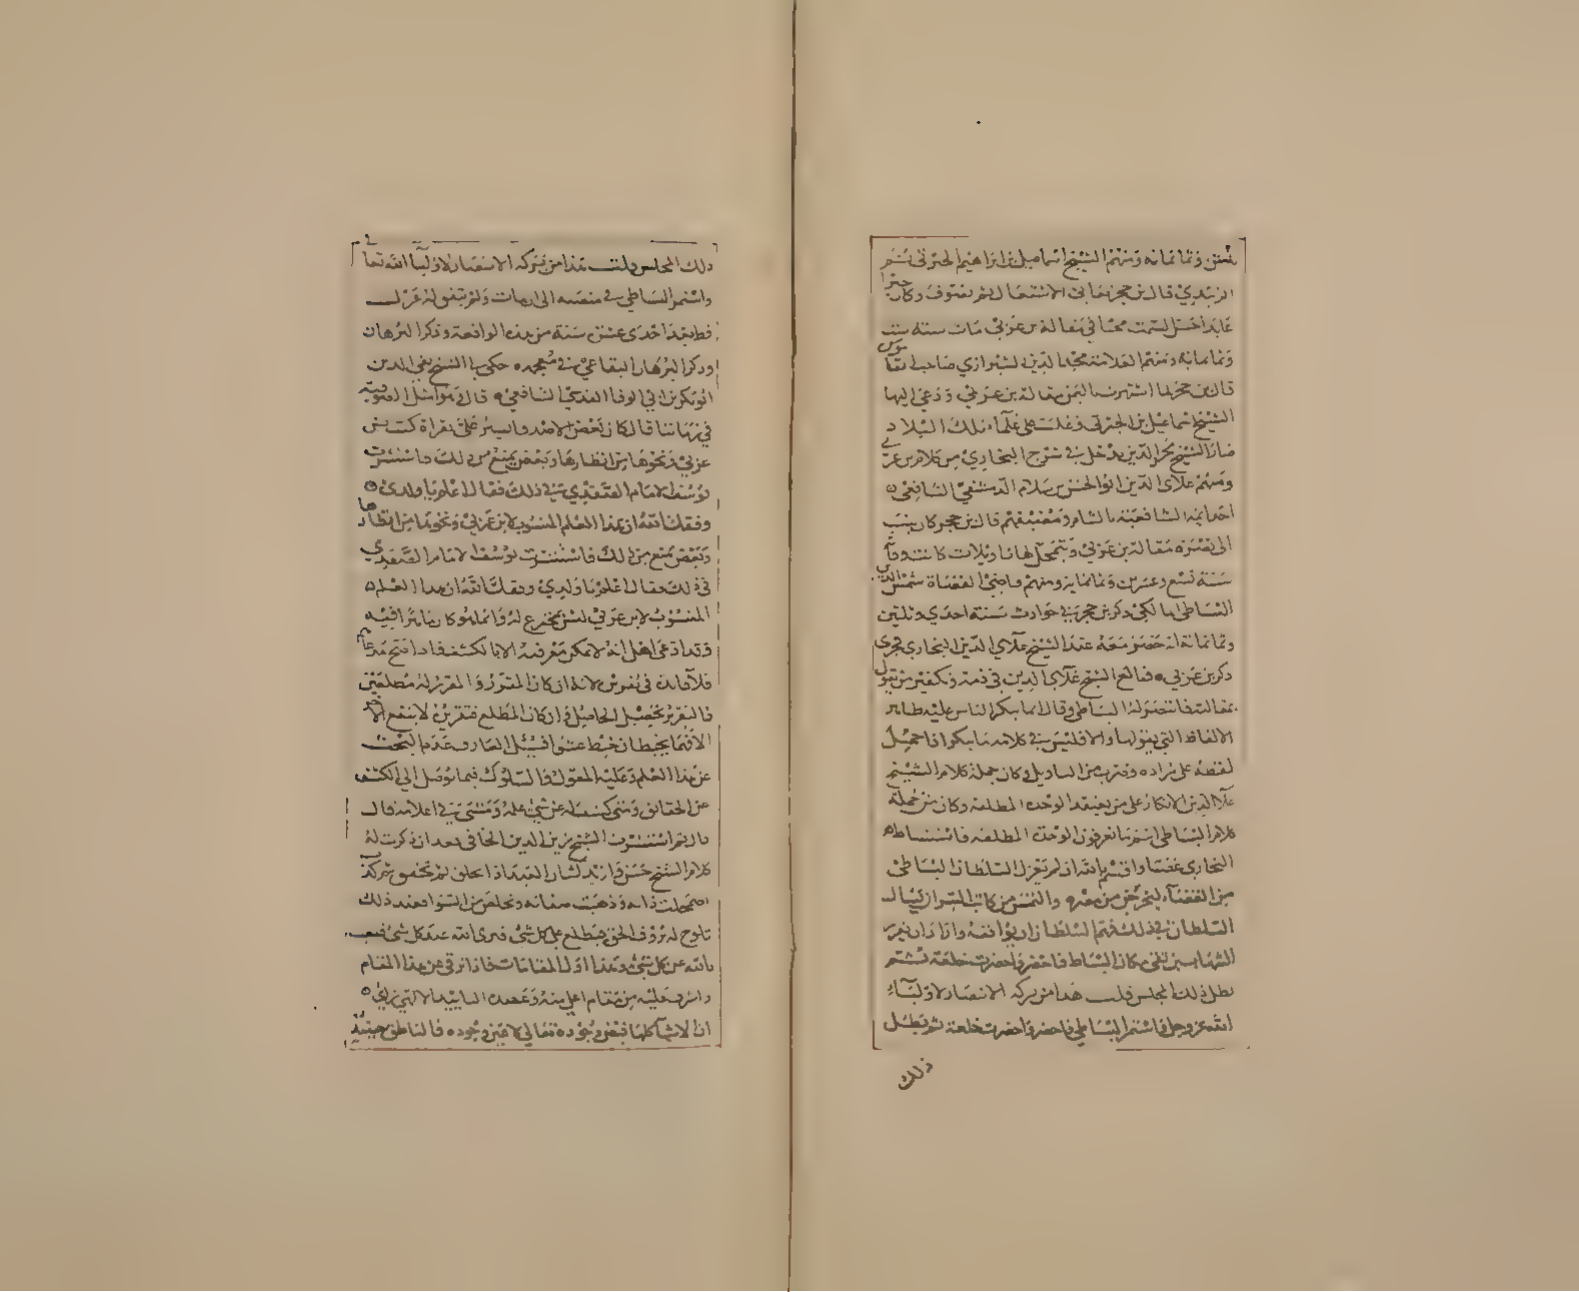 وثمانمائة ومنهم الشيخ اسماعيل بن ابراهيم الجبرتي ثم
الزبيدي قال بن حجر تعانى الاشتغال ثم تصوف وكان خيرا
عابدا حسن السمت محبا في مقالة بن عربي مات سنة ست
وثمانمائة ومنهم العلامة مجد الدين الشيرازي صاحب القاموس
قال بن حجر لما اشتهرت باليمن مقالة بن عربي ودعى اليها
الشيخ اسماعيل بن الجبرتي وغلبت على علماء تلك البلاد
صار الشيخ مجد الدين يدخل في شرح البخاري من كلام بن عربي
ومنهم علاي الدين ابو الحسن بن سلام الدمشقي الشافعي
احد ايمة الشافعية بالشام قال بن حجر كان ينسب
الى نصرة مقالة بن عربي ويتمحل لها تاويلات كانت وفاته
سنة تسع وعشرين وثمانماية ومنهم قاضي القضاة شمس الدين
البساطي المالكي ذكر بن حجر في حوادث سنة احدى وثلثين
وثمانمائة انه حضر معه عند الشيخ علاي الدين البخاري فجرى
ذكر بن عربي فبالغ الشيخ علاي الدين في ذمه وتكفير من يقول
بمقالته فانتصر له البساطي وقال انما ينكر الناس عليه ظاهر
الالفاظ التي يقولها والا فليس في كلامه ما ينكر اذا حمل
لفظه على مراده وضرب من التاويل وكان جملة كلام الشيخ
علا الدين الانكار على من يعتقد الوحدة المطلقة وكان من جملة
كلام البساطي انتم ما تعرفون الوحدة المطلقة فاستشاط
البخاري غضبا واقسم بالله ان لم يعزل السلطان البساطي
من القضاء ليخرجن من مصر والتمس من كاتب السر ان يسال
السلطان في ذلك فهم السلطان ان يوافقه واراد ان يقرر
الشهاب بن تقي مكان البساطي فاحضر واحضرت خلعته ثم
بطل ذلك المجلس قلت هذا من بركة الانتصار لاولياء
الله عز وجل فاستمر البساطي فاحضر واحضرت خلعته ثم بطل
ذلك
ذلك المجلس قلت هذا من بركة الانتصار لاوليا الله تعالى
واستمر البساطي في منصبه الى ان مات ولم يتفق له عزل
قط بعد احدى عشرة سنة من هذه الواقعة وذكر البرهان
وذكر البرهان البقاعي في معجمه حكى لي الشيخ تقي الدين
ابو بكر بن ابي الوفا القدسي الشافعي قال وهو امثل الصوفية
في زماننا قال كان بعض الاصدقاء يشير علي بقراة كتب بن
عربي ونحوها من انظارها وبعض يمنع من ذلك فاستشرت
يوسف الامام الصفدي في ذلك فقال اعلم يا ولدي
وفقك الله ان هذا العلم المنسوب لابن عربي ونحوها من انظارها
وبعض يمنع من ذلك فاستشرت يوسف الامام الصفدي
في ذلك فقال اعلم يا ولدي وفقك الله ان هذا العلم
المنسوب لابن عربي ليس بمخترع له وانما هو كان ماهرا فيه
وقد ادعى اهله انه لا يمكن معرفته الا بالكشف فاذا صح مدعاهم
فلا فائدة في تقريره لانه ان كان المقرر والمقرر له مطلعين
فالتقرير تحصيل الحاصل وان كان المطلع فتقريره لا ينفع الاخر
والا فهما يخبطان خبط عشوا فسبيل العارف عدم البحث
عن هذا العلم وعليه المعول والسلوك فيما يوصل الى الكشف
عن الحقائق ومتى كشف له عن شي علمه ومشى في اعلا منه قال
قال ثم استشرت الشيخ زين الدين الخافي بعد ان ذكرت له
كلام الشيخ يوسف فقال كلام الشيخ حسن وازيدك ان العبد اذا تخلق ثم تحقق ثم جذب
اضمحلت ذاته وذهبت صفاته وتخلص من السوا فعند ذلك
تلوح له بروق الحق فيطلع على كل شي فيرى الله عند كل شي فيغيب
بالله عن كل شي وهذا اول المقامات فاذا ترقى عن هذا المقام
واشرف عليه من مقام اعلى منه وعضده التاييد الالهي راى
ان الاشيا كلها فيض وجوده تعالى لا عين وجوده فالناطق حينئذ